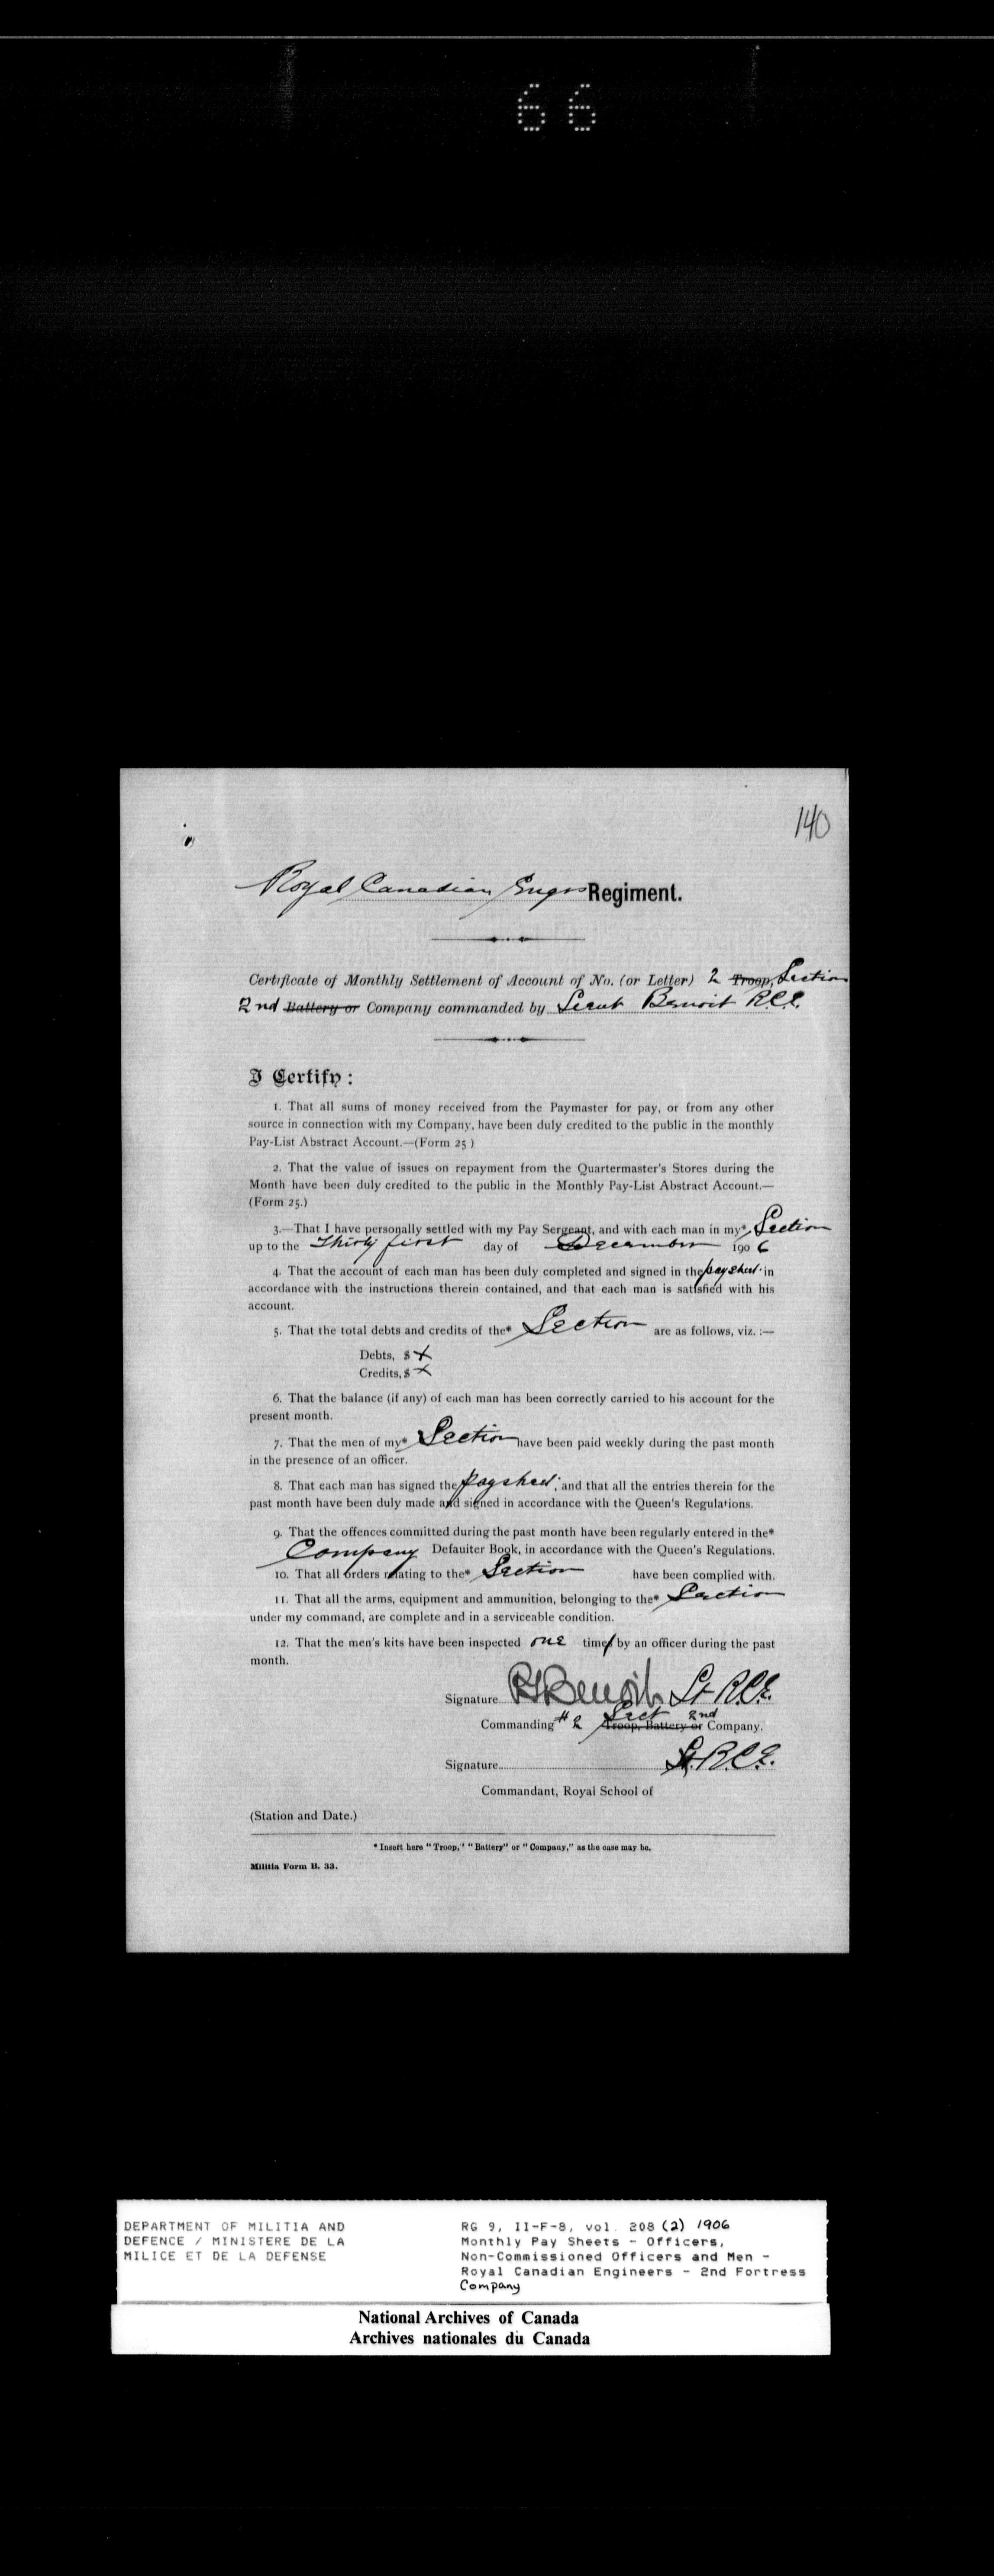 66
140
Royal Canadian Engrs Regiment.
Certificate of Monthly Settlement of Account of No. (or Letter) 2 Troop, Section
2nd Battery or Company commanded by Lieut Benoit R.C.E.
I Certify :
1. That all sums of money received from the Paymaster for pay, or from any other
source in connection with my Company, have been duly credited to the public in the monthly
Pay-List Abstract Account.—(Form 25 )
2. That the value of issues on repayment from the Quartermaster's Stores during the
Month have been duly credited to the public in the Monthly Pay-List Abstract Account.—
(Form 25.)
3.—That I have personally settled with my Pay Sergeant, and with each man in my* Section
up to the Thirty first day of December 190 6
4. That the account of each man has been duly completed and signed in the paysheet in
accordance with the instructions therein contained, and that each man is satisfied with his
account.
5. That the total debts and credits of the* Section are as follows, viz. :—
Debts, $ x
Credits, $ x
6. That the balance (if any) of each man has been correctly carried to his account for the
present month.
7. That the men of my* Section have been paid weekly during the past month
in the presence of an officer.
8. That each man has signed the paysheet; and that all the entries therein for the
past month have been duly made and signed in accordance with the Queen's Regulations.
9. That the offences committed during the past month have been regularly entered in the*
Company Defaulter Book, in accordance with the Queen's Regulations.
10. That all orders relating to the* Section have been complied with.
11. That all the arms, equipment and ammunition, belonging to the* Section
under my command, are complete and in a serviceable condition.
12. That the men's kits have been inspected one time by an officer during the past
month.
Signature Benoit Lt R.C.E.
Commanding # 2 Sect Troop, Battery or 2nd Company.
Signature Lt. R.C.E.
Commandant, Royal School of
(Station and Date.)
* Insert here "Troop," "Battery" or "Company," as the case may be.
Militia Form B. 33.
DEPARTMENT OF MILITIA AND
DEFENCE / MINISTERE DE LA
MILICE ET DE LA DEFENSE
RG 9, II-F-8, vol. 208 (2) 1906
Monthly Pay Sheets - Officers,
Non-Commissioned Officers and Men -
Royal Canadian Engineers - 2nd Fortress
Company
National Archives of Canada
Archives nationales du Canada